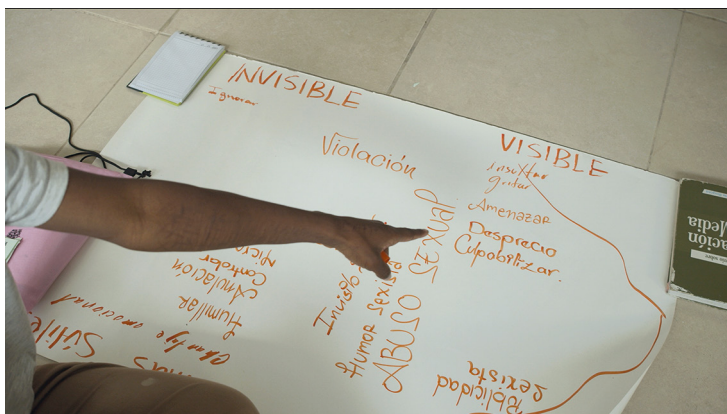 INVISIBLE
Ignorar
Violación
VISIBLE
insultar
gritar
Amenazar
Desprecio
Culpabilizar.
ABUSO SEXUAL
Humor sexista
Anulación
Controlar
Humillar
Chantaje emocional
Publicidad
sexista
ación
Media